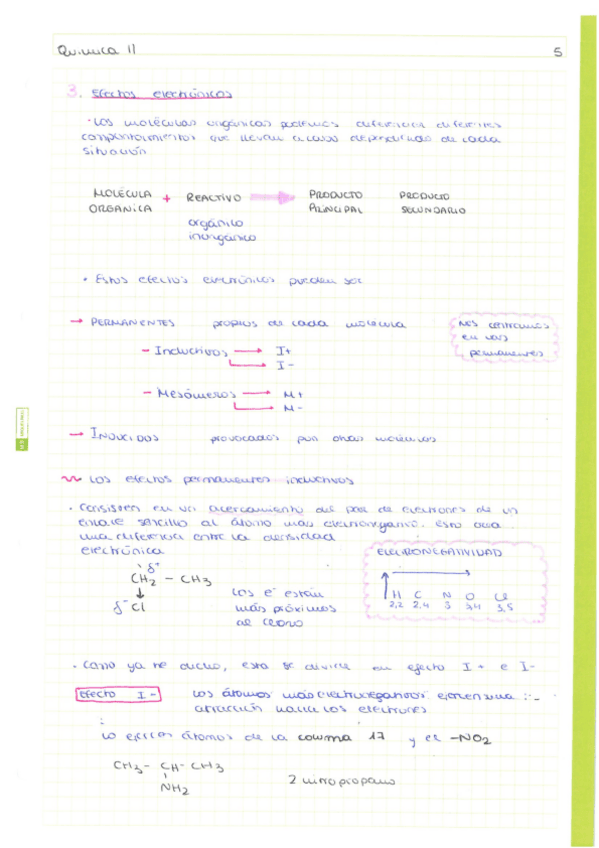 Química II 5
3. Efectos electrónicos
· Las moléculas orgánicas podemos diferenciar diferentes
comportamientos que llevan a cabo dependiendo de cada
situación
MOLÉCULA + REACTIVO → PRODUCTO PRODUCTO
ORGANICA PRINCIPAL SECUNDARIO
orgánico
inorgánico
· Estos efectos electrónicos pueden ser
→ PERMANENTES propios de cada molécula
Nos centramos
en los
permanentes
- Inductivos → I+
→ I-
- Mesómeros → M+
→ M-
→ INDUCIDOS provocados por otras moléculas
Los efectos permanentes inductivos
· Consisten en un acercamiento del par de electrones de un
enlace sencillo al átomo más electronegativo. Esto crea
una diferencia entre la densidad
electrónica
ELECTRONEGATIVIDAD
H C N O Cl
2,2 2,4 3 3,4 3,5
δ+
CH2 - CH3
↓
δ- Cl
Los e- están
más próximos
al cloro
· Como ya he dicho, esta se divide en efecto I+ e I-
Efecto I- Los átomos más electronegativos ejercen una
atracción hacia los electrones
Lo ejercen átomos de la columna 17 y el -NO2
CH3 - CH - CH3
NH2
2 nitropropano